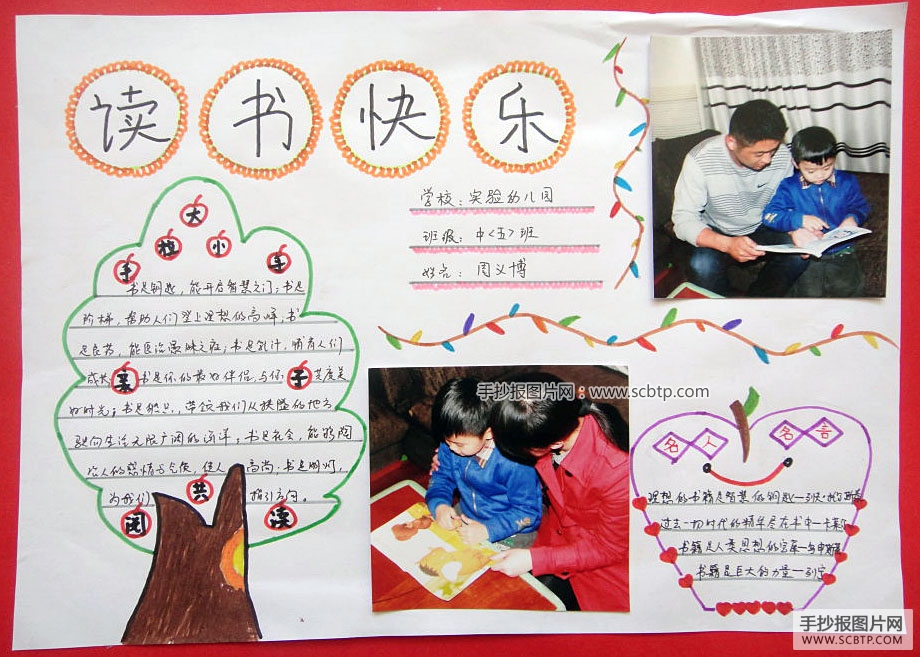 读书快乐
学校：实验幼儿园
班级：中<五>班
姓名：周义博
大
手拉小手
书是钥匙，能开启智慧之门；书是
阶梯，帮助人们登上理想的高峰；书
是良药，能医治愚昧之症；书是乳汁，哺育人们
成长 亲 书是你的最好伴侣，与你 子 共度美
好时光；书是航船，带领我们从狭隘的地方
驶向生活无限广阔的海洋；书是社会，能够陶
冶人的感情与气质，使人 高尚；书是明灯，
为我们 共 指引方向。
阅 读
手抄报图片网：www.scbtp.com
名人名言
理想的书籍是智慧的钥匙—列夫·托尔斯泰
过去一切时代的精华尽在书中—卡莱尔
书籍是人类思想的宝库—乌申斯基
书籍是巨大的力量—列宁
手抄报图片网
WWW.SCBTP.COM